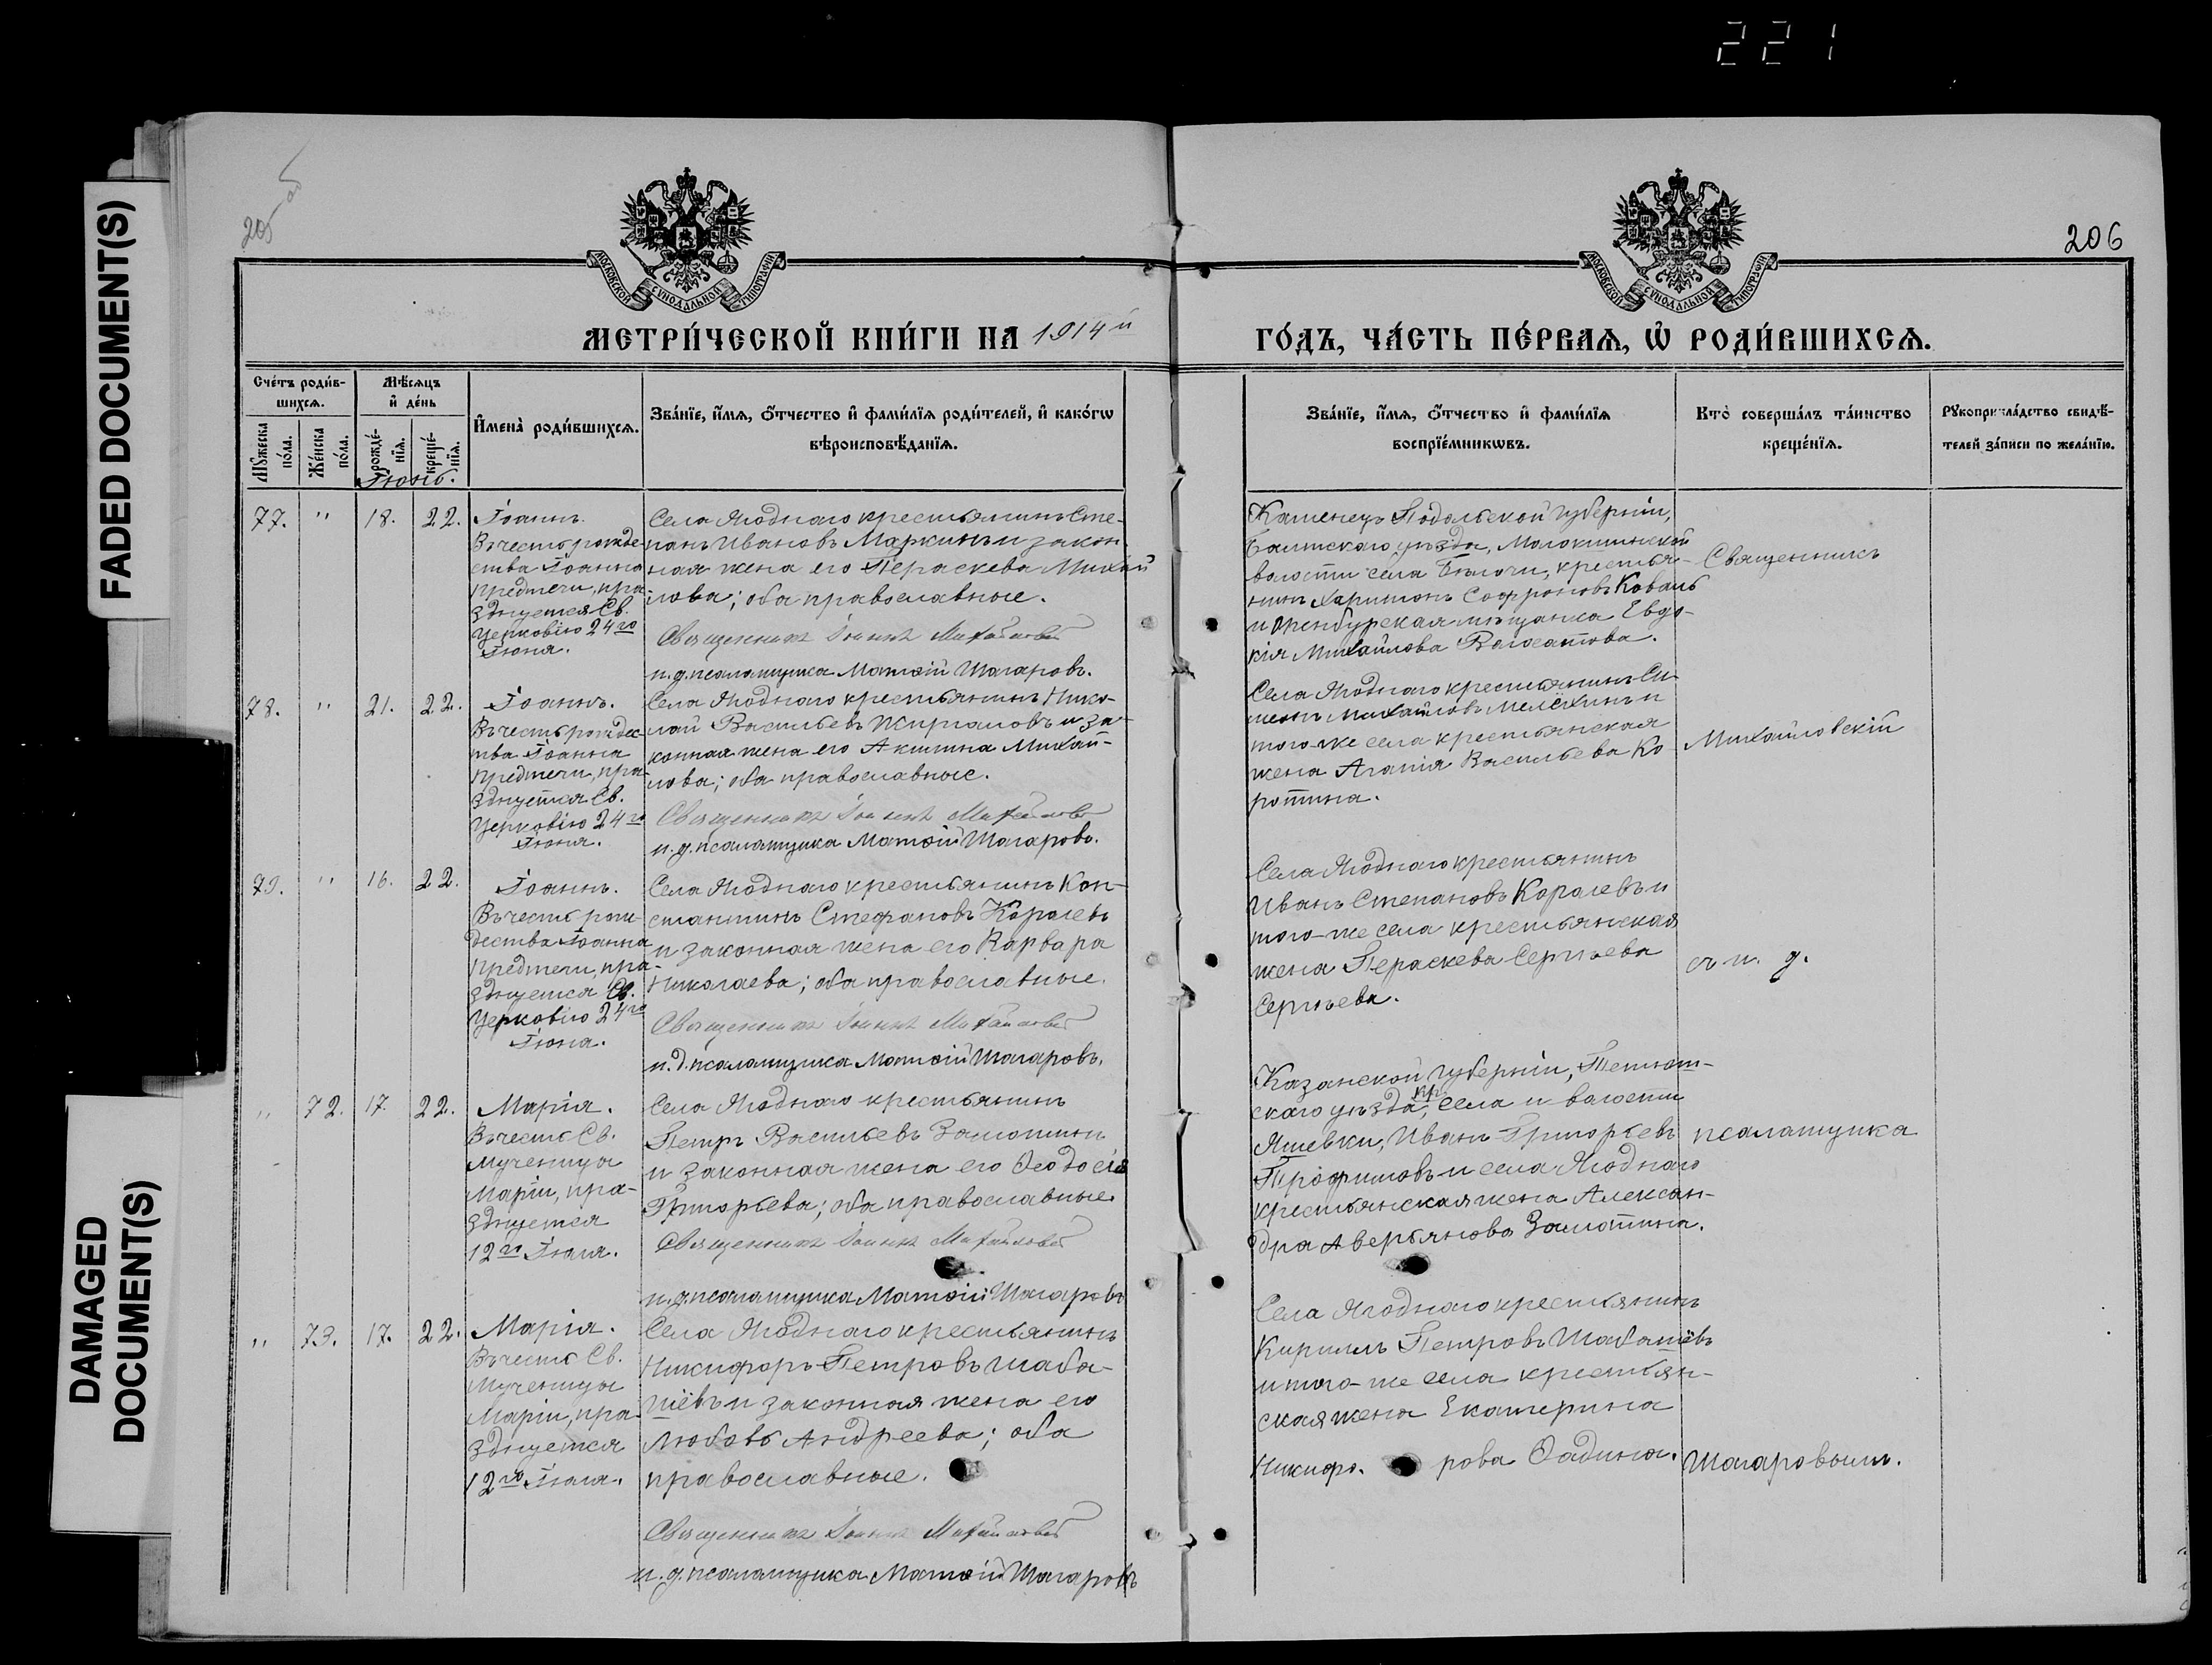 221
FADED DOCUMENT(S)
DAMAGED
DOCUMENT(S)
205 об
206
МОСКОВСКОЙ СѴНОДАЛЬНОЙ ТИПОГРАФІИ
МОСКОВСКОЙ СѴНОДАЛЬНОЙ ТИПОГРАФІИ
МЕТРИ́ЧЕСКОЙ КНИ́ГИ НА 1914й
ГО́ДЪ, ЧА́СТЬ ПЕ́РВАѦ, Ѡ҆ РОДИ́ВШИХСѦ.
Сче́тъ роди́в-
шихсѧ.
Мꙋ́жеска
по́ла.
Же́нска
по́ла.
Мѣ́сѧцъ
и҆ де́нь
рожде́-
нїѧ.
креще́-
нїѧ.
И҆мена̀ роди́вшихсѧ.
Зва́нїе, и҆́мѧ, ѻ҆́тчество и҆ фами́лїѧ роди́телей, и҆ како́гѡ
вѣроисповѣ́данїѧ.
Зва́нїе, и҆́мѧ, ѻ҆́тчество и҆ фами́лїѧ
воспрїе́мникѡвъ.
Кто̀ соверша́лъ та́инство
креще́нїѧ.
Рꙋкоприкла́дство свидѣ́-
телей за́писи по жела́нїю.
Іюнь.
77. " 18. 22.
Іоаннъ.
Въ честь рожде-
ства Іоанна
Предтечи, пра-
зднуется Св.
Церковію 24го
Іюня.
Села Ягоднаго крестьянинъ Сте-
панъ Ивановъ Маркинъ и закон-
ная жена его Параскева Михай
лова; оба православные.
Священникъ Іоаннъ Михайловскій
и. д. псаломщика Матѳій Шагаровъ.
Каменецъ Подольской губерніи,
Балтскаго уѣзда, Молокишинской
волости села Бѣлочи, крестья-
нинъ Харитонъ Софроновъ Коваль
и Оренбургская мѣщанка Евдо-
кія Михайлова Волосатова.
Священникъ
78. " 21. 22.
Іоаннъ.
Въ честь рождес-
тва Іоанна
Предтечи, пра-
зднуется Св.
Церковію 24го
Іюня.
Села Ягоднаго крестьянинъ Нико-
лай Васильевъ Жиргаловъ и за-
конная жена его Акилина Михай-
лова; оба православные.
Священникъ Іоаннъ Михайловскій
и. д. псаломщика Матѳій Шагаровъ.
Села Ягоднаго крестьянинъ Си-
меонъ Михайловъ Мелёхинъ и
того-же села крестьянская
жена Агапія Васильева Ко
ротина.
Михайловскій
79. " 16. 22.
Іоаннъ.
Въ честь рож-
дества Іоанна
Предтечи, пра-
зднуется Св.
Церковію 24го
Іюня.
Села Ягоднаго крестьянинъ Кон-
стантинъ Стефановъ Королевъ
и законная жена его Варвара
Николаева; оба православные.
Священникъ Іоаннъ Михайловскій
и. д. псаломщика Матѳій Шагаровъ.
Села Ягоднаго крестьянинъ
Иванъ Степановъ Королевъ и
того-же села крестьянская
жена Параскева Сергѣева
Сергѣева.
съ и. д.
" 72. 17. 22.
Марія.
Въ честь Св.
Мученицы
Маріи, пра-
зднуется
12го Іюля.
Села Ягоднаго крестьянинъ
Петръ Васильевъ Замотинъ
и законная жена его Ѳеодосія
Григорьева; оба православные.
Священникъ Іоаннъ Михайловскій
и. д. псаломщика Матѳій Шагаровъ
Казанской губерніи, Тетюш-
скаго уѣзда, кр. села и волости
Яшевки, Иванъ Григорьевъ
Трофимовъ и села Ягоднаго
крестьянская жена Алексан-
дра Аверьянова Замотина.
псаломщика
" 73. 17. 22.
Марія.
Въ честь Св.
Мученицы
Маріи, пра-
зднуется
12го Іюля.
Села Ягоднаго крестьянинъ
Никифоръ Петровъ Шаба-
шёвъ и законная жена его
Любовь Андреева; оба
православные.
Священникъ Іоаннъ Михайловскій
и. д. псаломщика Матѳій Шагаровъ
Села Ягоднаго крестьянинъ
Кириллъ Петровъ Шабашёвъ
и того-же села крестьян-
ская жена Екатерина
Никифо- рова Ѳадина.
Шагаровымъ.